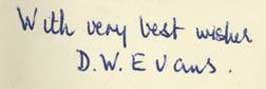 With very best wishes
D.W. Evans.